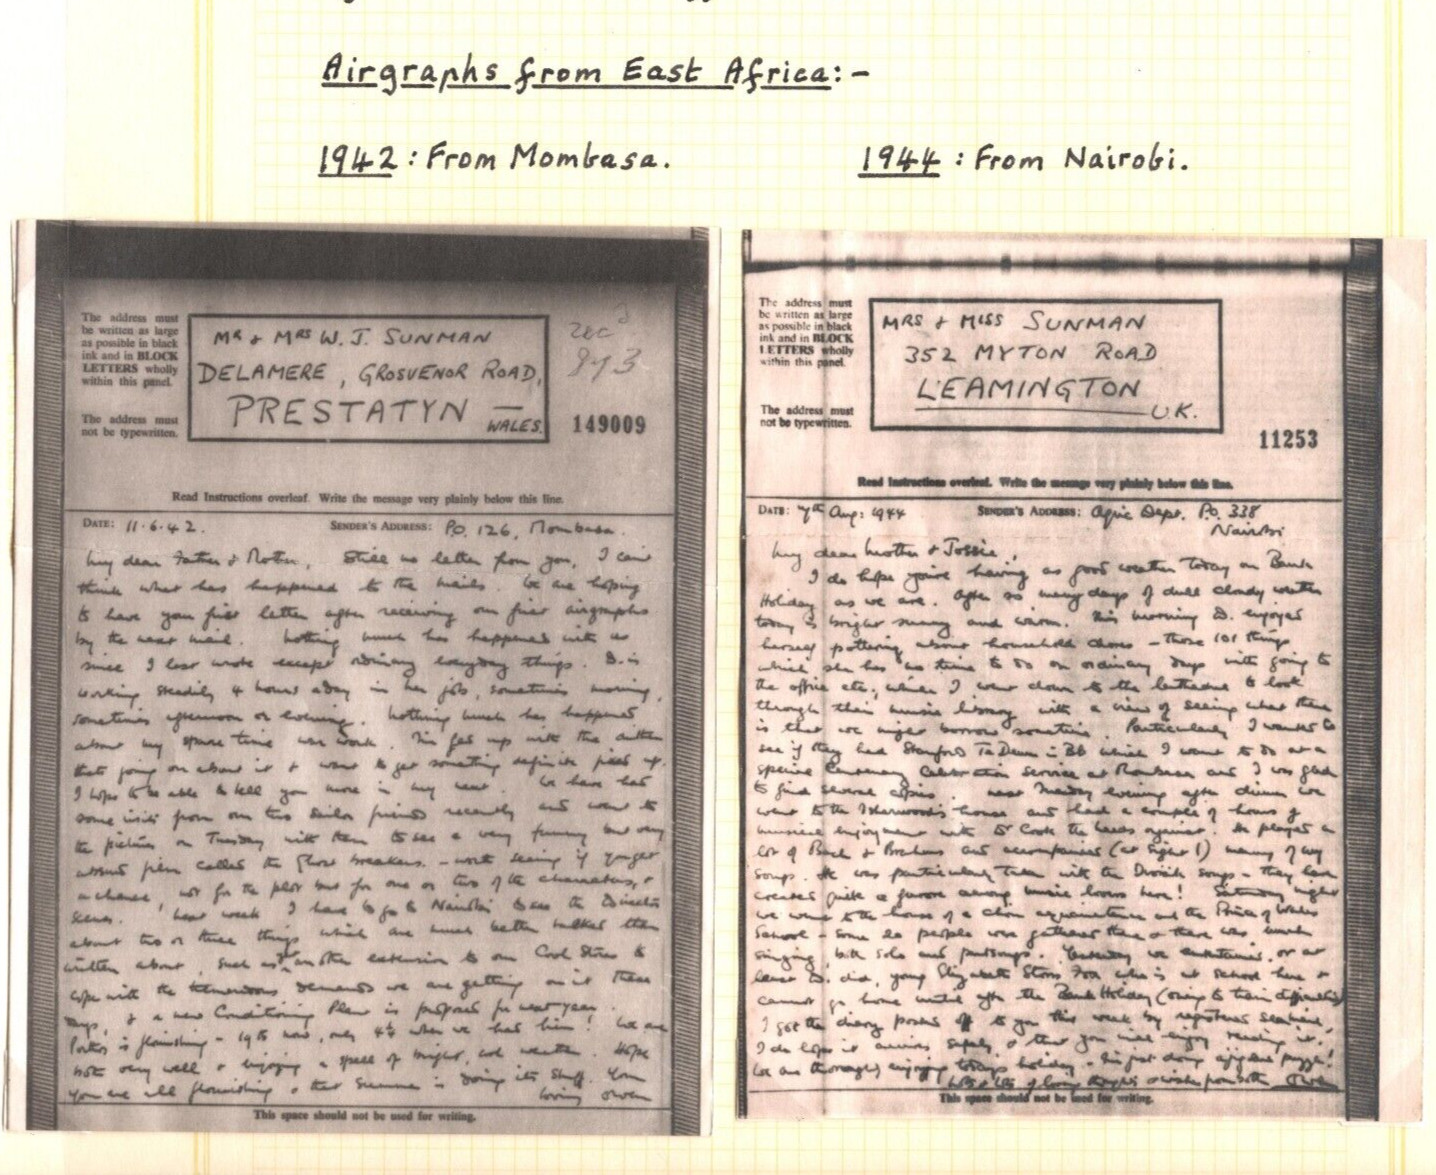 Airgraphs from East Africa:-
1942: From Mombasa.
1944: From Nairobi.
The address must
be written as large
as possible in black
ink and in BLOCK
LETTERS wholly
within this panel.
The address must
not be typewritten.
MR & MRS W. J. SUNMAN
DELAMERE, GROSVENOR ROAD,
PRESTATYN —
WALES.
149009
Read Instructions overleaf. Write the message very plainly below this line.
DATE: 11.6.42. SENDER'S ADDRESS: P.O. 126, Mombasa.
My dear Father & Mother, Still no letter from you, I can't
think what has happened to the mails. We are hoping
to have your first letter after receiving our first airgraphs
by the next mail. Nothing much has happened with us
since I last wrote except ordinary everyday things. D. is
working steadily 4 hours a day in her job, sometimes morning,
sometimes afternoon or evening. Nothing much has happened
about my spare time war work. I'm fed up with the
that going on about it & want to get something definite fixed up.
I hope to be able to tell you more in my next. We have had
some visits from our two Sailor friends recently and went to
the pictures on Tuesday with them to see a very funny but very
absurd film called the Ghost Breakers. - worth seeing if you get
a chance, not for the plot but for one or two of the characters, &
scenes. Next week I have to go to Nairobi to see the Director
about two or three things which are much better talked than
written about, such as another extension to our Cool Store to
cope with the tremendous demands we are getting on it these
days, & a new Conditioning Plant is proposed for next year.
is flourishing - 19 lb now, only 4½ when we had him! We are
both very well & enjoying a spell of bright, cool weather. Hope
you are all flourishing & that Summer is doing its stuff. Your
loving Owen
This space should not be used for writing.
The address must
be written as large
as possible in black
ink and in BLOCK
LETTERS wholly
within this panel.
The address must
not be typewritten.
MRS & MISS SUNMAN
352 MYTON ROAD
LEAMINGTON
U.K.
11253
Read Instructions overleaf. Write the message very plainly below this line.
DATE: 7th Aug: 1944 SENDER'S ADDRESS: Agric Dept. P.O. 338
Nairobi
My dear Mother & Jossie,
I do hope you're having as good weather today on Bank
Holiday as we are. After so many days of dull cloudy weather
today is bright sunny and warm. This morning D. enjoyed
herself pottering about household chores - those 101 things
which she has no time to do on ordinary days with going to
the office etc, while I went down to the Cathedral to look
through their music library with a view of seeing what there
is that we might borrow sometime. Particularly I wanted to
see if they had Stanford Te Deum in Bb which I want to do at a
special Centenary Celebration service at Mombasa and I was glad
to find several copies. Last Tuesday evening after dinner we
went to the Isherwood's house and had a couple of hours of
musical enjoyment with Dr Cook the organist. He played a
lot of Bach & Brahms and accompanied (at sight!) many of my
songs. He was particularly taken with the Dvorak songs - they have
created quite a furore among music lovers here! Saturday night
we went to the house of a acquaintance at the Prince of Wales
School - some 20 people were gathered there & there was much
singing, both solo and partsongs. Yesterday we entertained, or at
least D. did, young Elizabeth Fox who is at school here &
cannot go home until after the Bank Holiday (owing to train difficulties)
I got the diary posted off to you this week by registered seamail,
I do hope it arrives safely & that you will enjoy reading it.
We are thoroughly enjoying today's holiday - I'm just doing a puzzle!
Lots & lots of loving thoughts & wishes from both Owen
This space should not be used for writing.